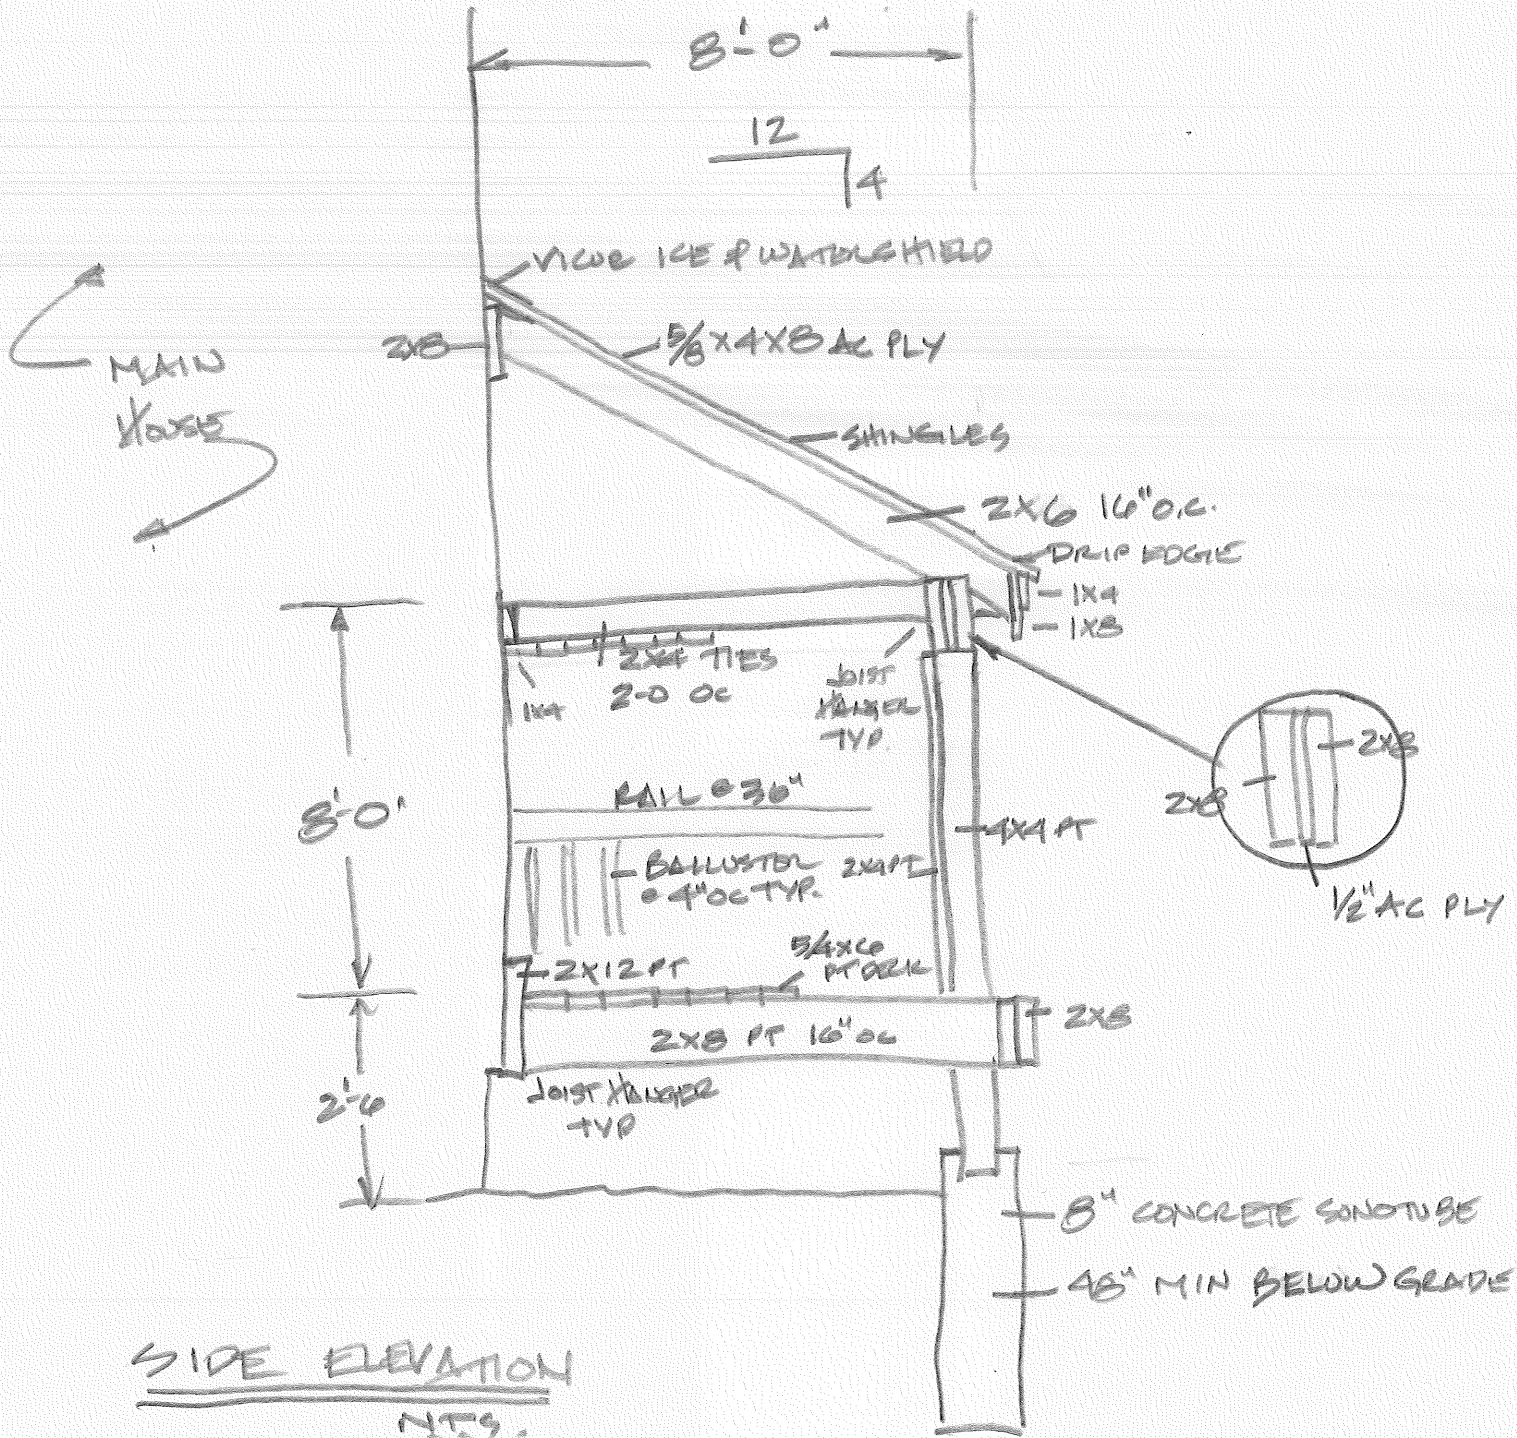 8'-0"
12
4
VICOR ICE & WATERSHIELD
2X8
5/8 X 4 X 8 AC PLY
MAIN
HOUSE
SHINGLES
2X6 16" O.C.
DRIP EDGE
1X4
1X8
2X4 TIES
2-0 OC
1X4
JOIST
HANGER
TYP.
2X8
2X8
1/2" AC PLY
8'-0"
RAIL @ 36"
4X4 PT
BALLUSTER
@ 4" OC TYP.
2X4 PT
2X12 PT
5/4X6
PT DECK
2X8 PT 16" OC
2X8
2'-6
JOIST HANGER
TYP
8" CONCRETE SONOTUBE
48" MIN BELOW GRADE
SIDE ELEVATION
N.T.S.